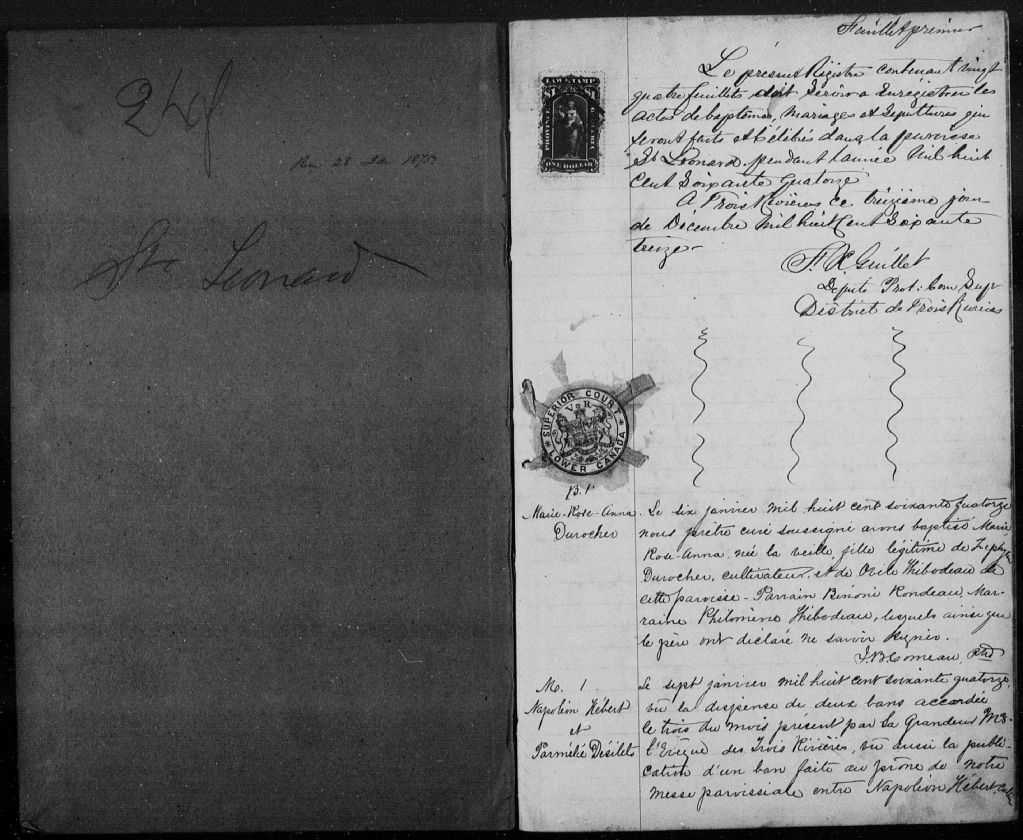 24f
Rec. 28 Jan 1875
St Leonard
Feuillet premier
LAW STAMP
$1 $1
PROVINCE
QUEBEC
ONE DOLLAR
Le présent Régistre contenant vingt
quatre feuillets doit servir a Enregistrer les
actes de baptêmes, Mariages et Sepultures qui
seront faits et Célébrés dans la paroisse
St. Leonard pendant l'année Mil huit
Cent Soixante quatorze
A Trois Rivières ce treizième jour
de Décembre Mil huit Cent Soixante
treize
F. X. Guillet
Député Prot. Cour Supr
District de Trois Rivières
SUPERIOR COURT
V R
LOWER CANADA
B. 1.
Marie-Rose-Anna
Durocher
Le six janvier mil huit cent soixante quatorze
nous prêtre curé soussigné avons baptisé Marie
Rose-Anna, née la veille, fille légitime de Zephyr
Durocher, cultivateur, et de Ovile Thibodeau de
cette paroisse - Parrain Bénoni Rondeau, Mar-
raine Philomène Thibodeau, lesquels ainsi que
le père ont déclaré ne savoir signer.
J. B. Comeau, Ptre
M. 1
Napoléon Hébert
et
Parmélie Désilets
Le sept janvier mil huit cent soixante quatorze,
vu la dispense de deux bans accordée
le trois du mois présent par Sa Grandeur Mgr
l'Evêque des Trois Rivières, vu aussi la publi-
cation d'un ban faite au prône de notre
messe paroissiale entre Napoléon Hébert,